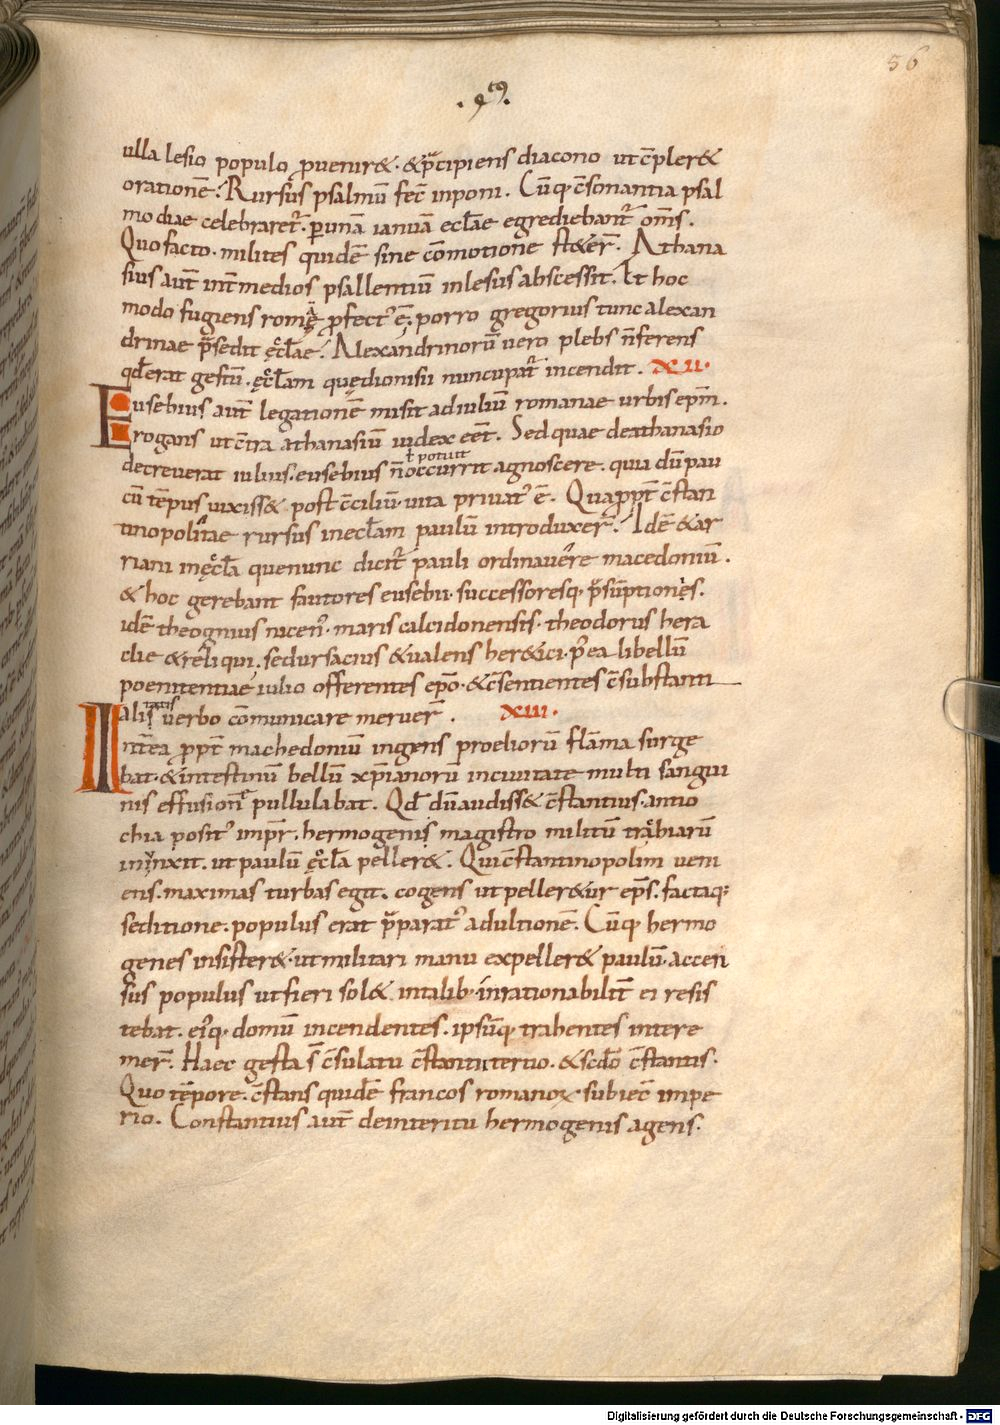 56
.qtꝰ.
ulla lesio populo ꝓuenir&. &p̄cipiens diacono ut c̄pler&
orationē. Rursus psalmū fec̄ inponi. Cūq; c̄sonantia psal
modiae celebraret᷑. ꝑ unā ianuā eccl̄ae egrediebant᷑ om̄s.
Quo facto. milites quidē sine cōmotione st&er̄. Athana
sius aut̄ int̄ medios psallentiū inlesus abscessit. Et hoc
modo fugiens romę ꝓfectꝰ ē. porro gregorius tunc alexan
drinae p̄sedit ęccl̄ae. Alexandrinorū uero plebs n̄ ferens
qd̄ erat gestū. ęccl̄am quę dionisii nuncupat᷑ incendit. XII.
Eusebius aut̄ legationē misit ad iuliū romanae urbis ep̄m.
rogans ut c̄tra athanasiū iudex eēt. Sed quae de athanasio
decreuerat iulius. eusebius n̄ occurrit agnoscere. quia dū pau
ł potuit
cū tēpus uixiss& post c̄ciliū. uita priuatꝰ ē. Quapropt̄ c̄stan
tinopolitae rursus in eccl̄am paulū introduxer̄. Idē & ar
riani in ęccl̄a quę nunc dicit᷑ pauli ordinauere macedoniū.
& hoc gerebant fautores eusebii. successoresq; p̄sūptionis.
idē theognius nicenꝰ. maris calcidonensis. theodorus hera
clie & reliqui. sed ursacius & ualens her&ici. p̄ ea libellū
poenitentiae iulio offerentes ep̄o. & c̄sentientes c̄substanti
alis uerbo cōmunicare meruer̄. XIII.
tatis
Int̄ea ꝓpt̄ machedoniū ingens proeliorū flāma surge
bat. & intestinū bellū xp̄ianorū in ciuitate multi sangui
nis effusione pullulabat. Qd̄ dū audiss& c̄stantius. antio
chia positꝰ imp̄r. hermogenis magistro militū trabiarū
iniunxit. ut paulū ęccl̄a peller&. Qui c̄stantinopolim ueni
ens. maximas turbas egit. cogens ut peller&ur ep̄s. factaq;
seditione. populus erat p̄paratꝰ ad ultionē. Cūq; hermo
genes insister&. ut militari manu expeller& paulū. accen
sus populus ut fieri sol& in talib; inrationabilit̄ ei resis
tebat. eiꝰq; domū incendentes. ipsūq; trahentes intere
mer̄. Haec gesta s̄ c̄sulatu c̄stantii tertio. & scd̄o c̄stantis.
Quo tēpore. c̄stans quidē francos romanoꝝ subiec̄ impe
rio. Constantius aut̄ de interitu hermogenis agens.
Digitalisierung gefördert durch die Deutsche Forschungsgemeinschaft - DFG